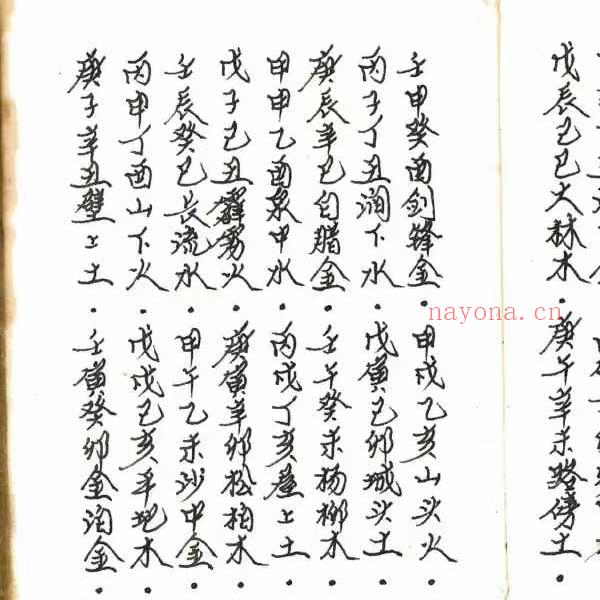 戊辰己巳大林木·庚午辛未路傍土·
壬申癸酉剑鋒金·甲戌乙亥山头火·
丙子丁丑涧下水·戊寅己卯城头土·
庚辰辛巳白腊金·壬午癸未杨柳木·
甲申乙酉泉中水·丙戌丁亥屋上土·
戊子己丑霹雳火·庚寅辛卯松柏木·
壬辰癸巳長流水·甲午乙未沙中金·
丙申丁酉山下火·戊戌己亥平地木·
庚子辛丑壁上土·壬寅癸卯金泊金·
nayona.cn